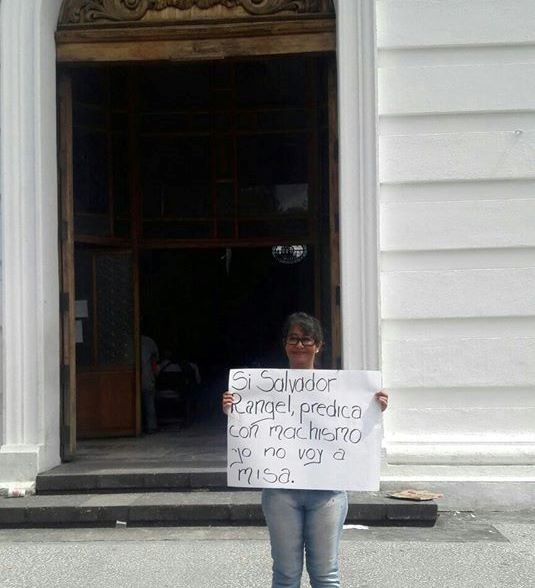 Si Salvador
Rangel, predica
con machismo
yo no voy a
misa.